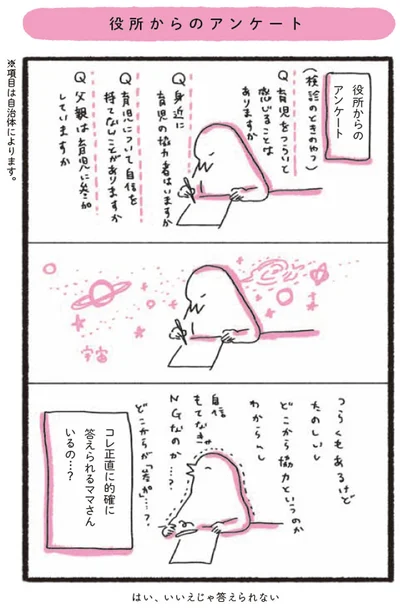 役所からのアンケート
※項目は自治体によります。
役所からの
アンケート
(検診のときのやつ)
Q 育児をつらいと
感じることは
ありますか
Q 身近に
育児の協力者はいますか
Q 育児について自信を
持てないことがありますか
Q 父親は育児に参加
していますか
宇宙
つらくもあるけど
たのしいし
どこから協力というのか
わからんし
自信
もてなきゃ
NGなのか…?
どこからが「参加」…?
コレ正直に的確に
答えられるママさん
いるの…?
はい、いいえじゃ答えられない